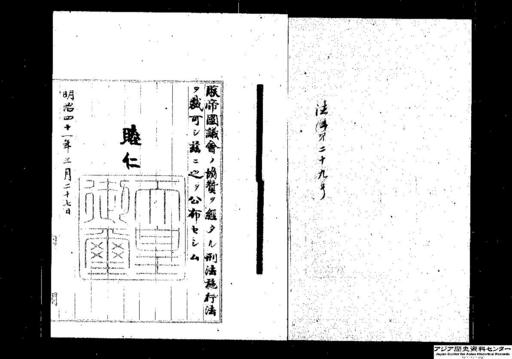 法律第二十九号
朕帝國議會ノ協賛ヲ経タル刑法施行法
ヲ裁可シ茲ニ之ヲ公布セシム
睦仁
天皇御璽
明治四十一年三月二十七日
アジア歴史資料センター
Japan Center for Asian Historical Records